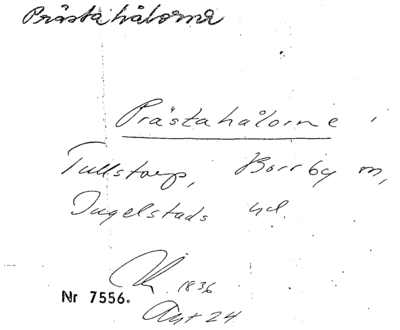 Prästahålorna
Prästahålorne
Tullstorp, Borrby sn,
Ingelstads hd.
1836
Nr 7556.
Akt 24